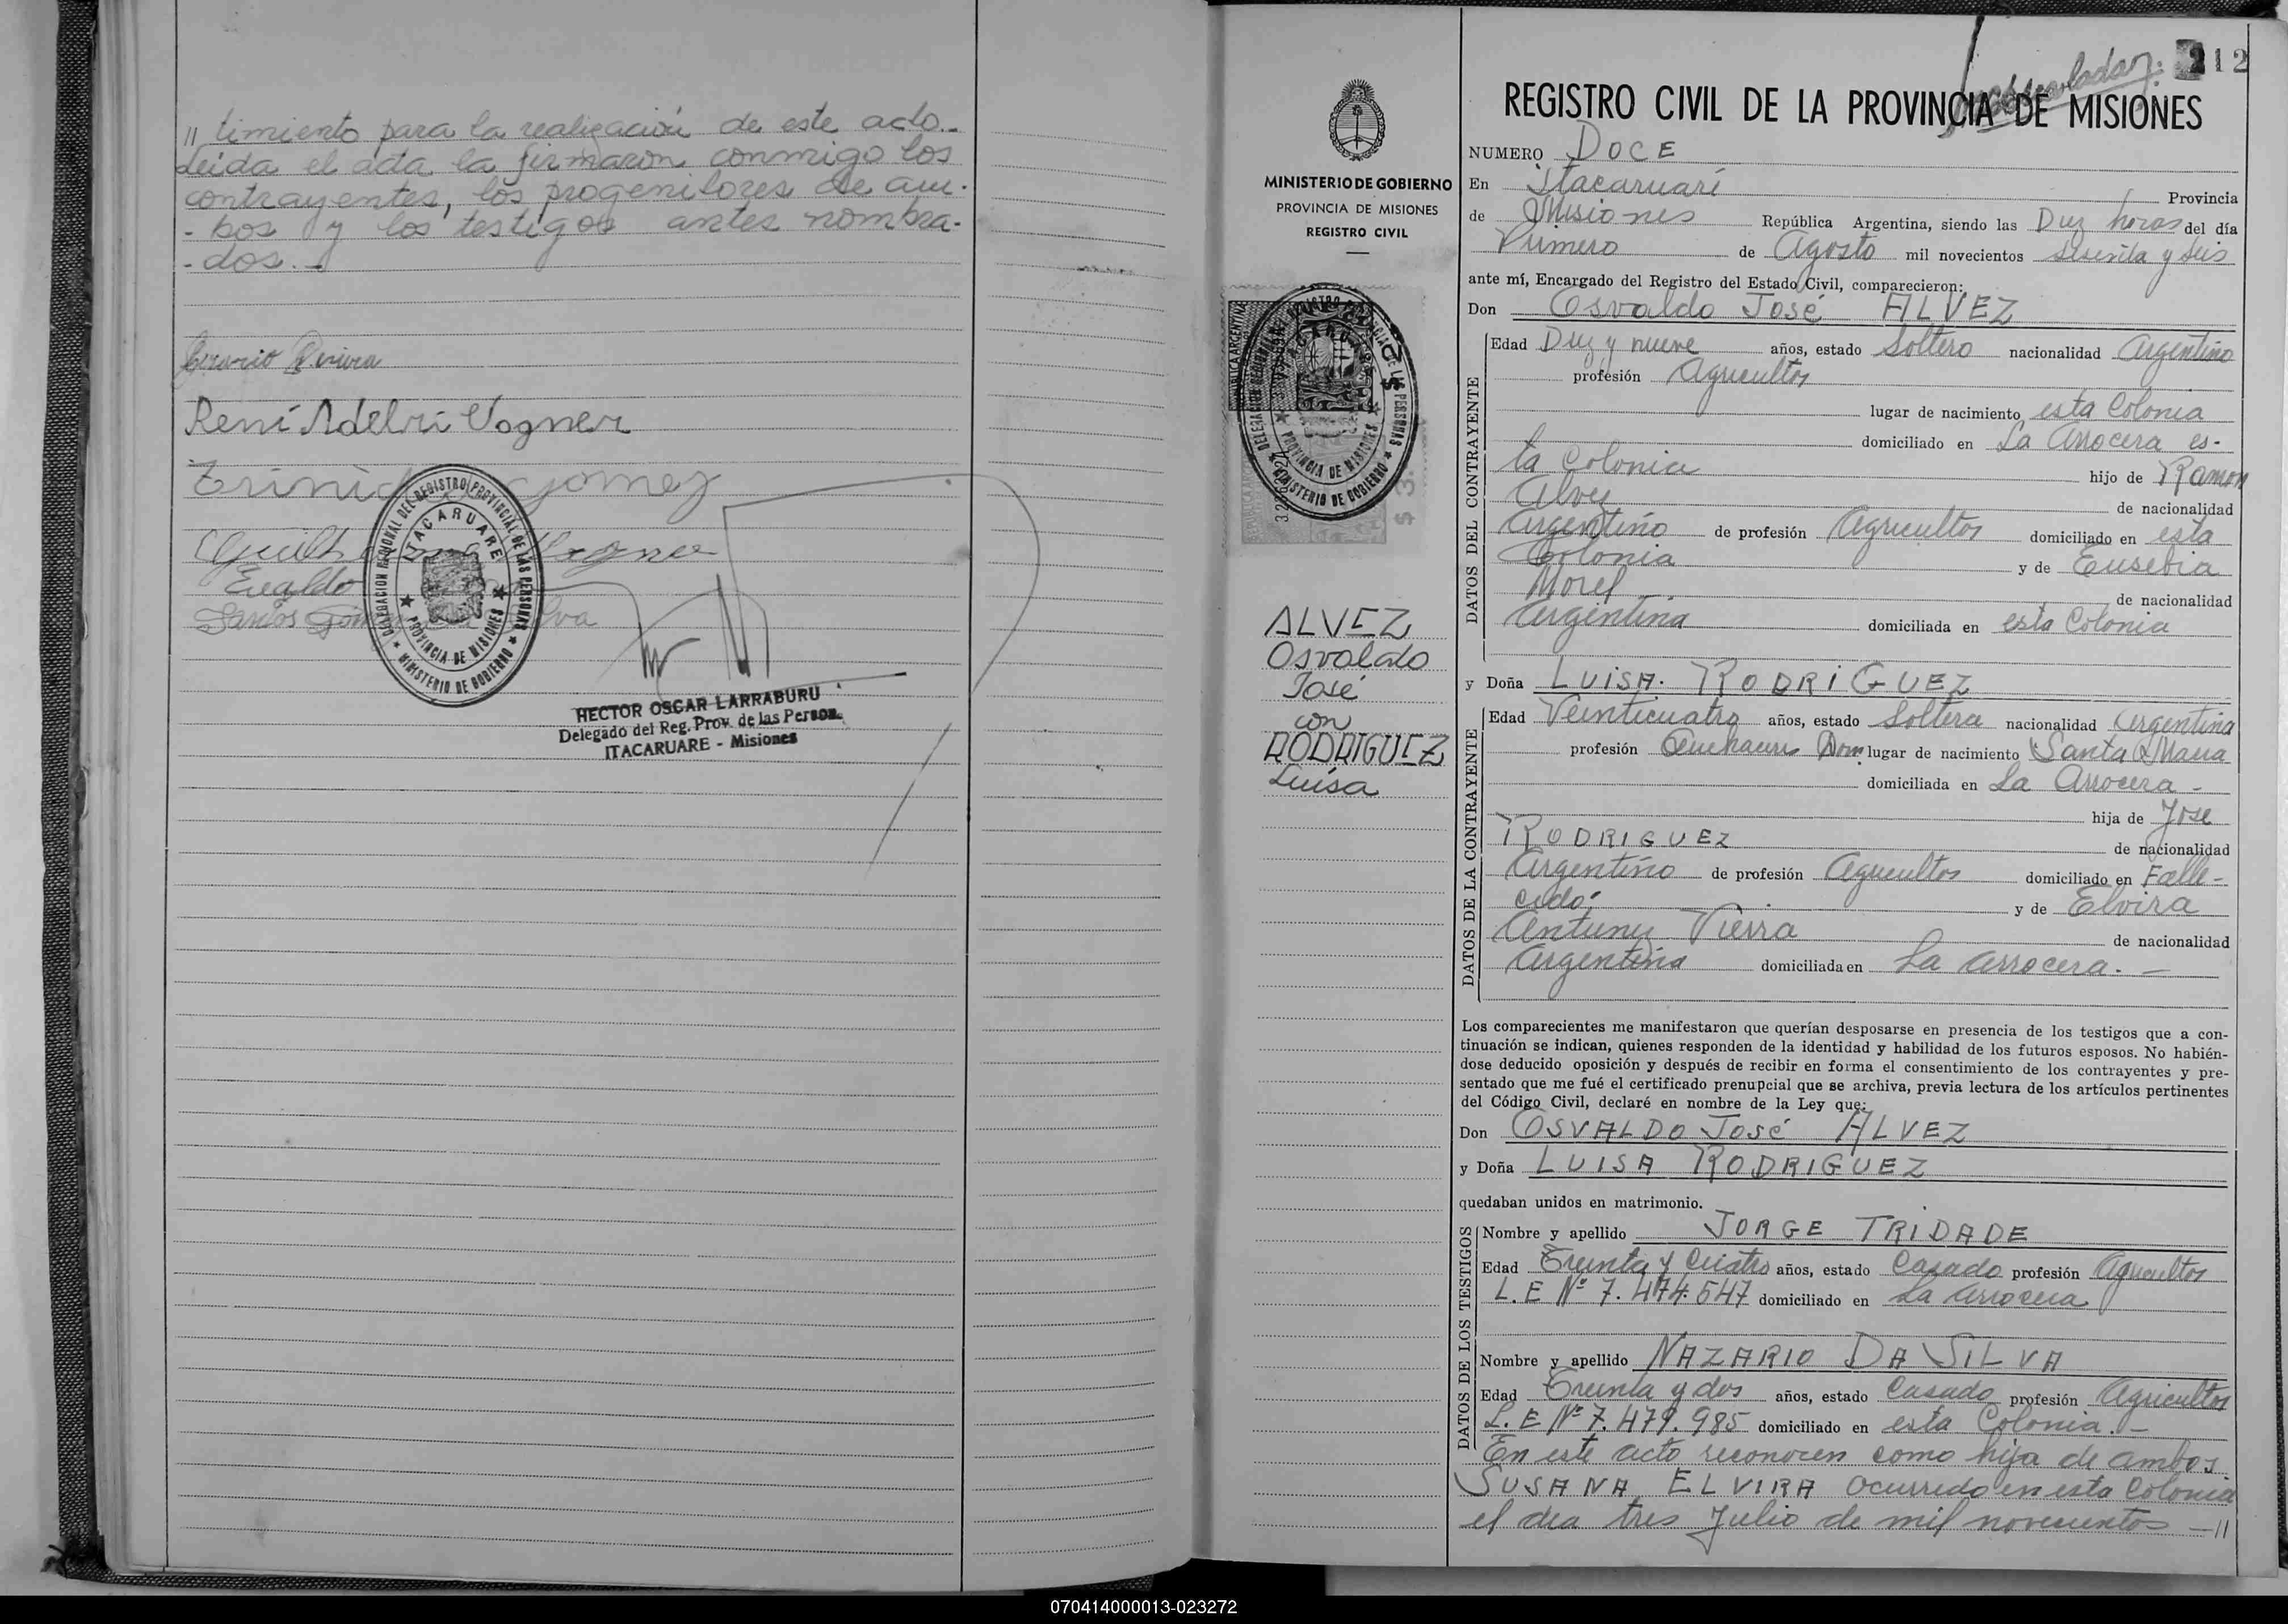 // timiento para la realización de este acto.-
Leida el acta la firmaron conmigo los
contrayentes, los progenitores de am-
-bos y los testigos antes nombra-
-dos.-
René Adelri Vogner
Trinid Gomez
Evaldo
Santos Silva
DELEGACION REGIONAL DEL REGISTRO PROVINCIAL DE LAS PERSONAS
ITACARUARE
PROVINCIA DE MISIONES
MINISTERIO DE GOBIERNO
HECTOR OSCAR LARRABURU
Delegado del Reg. Prov. de las Person.
ITACARUARE - Misiones
212
MINISTERIO DE GOBIERNO
PROVINCIA DE MISIONES
REGISTRO CIVIL
PROVINCIA DE MISIONES
MINISTERIO DE GOBIERNO
ALVEZ
Osvaldo
José
con
RODRIGUEZ
Luisa
REGISTRO CIVIL DE LA PROVINCIA DE MISIONES
NUMERO DOCE
En Itacaruaré Provincia
de Misiones República Argentina, siendo las Diez horas del día
Primero de Agosto mil novecientos sesenta y seis
ante mí, Encargado del Registro del Estado Civil, comparecieron:
Don Osvaldo José ALVEZ
DATOS DEL CONTRAYENTE
Edad Diez y nueve años, estado Soltero nacionalidad Argentino
profesión Agricultor
lugar de nacimiento esta Colonia
domiciliado en La Arrocera es-
ta Colonia hijo de Ramon
Alvez de nacionalidad
Argentino de profesión Agricultor domiciliado en esta
Colonia y de Eusebia
Morel de nacionalidad
Argentina domiciliada en esta Colonia
y Doña LUISA RODRIGUEZ
DATOS DE LA CONTRAYENTE
Edad Veinticuatro años, estado Soltera nacionalidad Argentina
profesión Quehaceres Dom. lugar de nacimiento Santa Maria
domiciliada en La Arrocera -
hija de Jose
RODRIGUEZ de nacionalidad
Argentino de profesión Agricultor domiciliado en Falle-
cido. y de Elvira
Antunez Vieira de nacionalidad
Argentina domiciliada en La Arrocera. -
Los comparecientes me manifestaron que querían desposarse en presencia de los testigos que a con-
tinuación se indican, quienes responden de la identidad y habilidad de los futuros esposos. No habién-
dose deducido oposición y después de recibir en forma el consentimiento de los contrayentes y pre-
sentado que me fué el certificado prenupcial que se archiva, previa lectura de los artículos pertinentes
del Código Civil, declaré en nombre de la Ley que:
Don OSVALDO José ALVEZ
y Doña LUISA RODRIGUEZ
quedaban unidos en matrimonio.
DATOS DE LOS TESTIGOS
Nombre y apellido JORGE TRIDADE
Edad Treinta y Cuatro años, estado Casado profesión Agricultor
L. E Nº 7.474.547 domiciliado en La Arrocera
Nombre y apellido NAZARIO DA SILVA
Edad Treinta y dos años, estado Casado profesión Agricultor
L. E Nº 7.479.985 domiciliado en esta Colonia. -
En este acto reconocen como hija de ambos
SUSANA ELVIRA ocurrido en esta Colonia
el dia tres Julio de mil novecientos —//
070414000013-023272